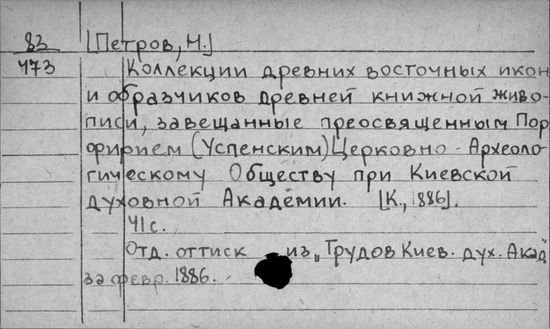 83 [Петров, Н.]
473 Коллекции древних восточных икон
и образчиков древней книжной живо-
писи, завещанные преосвященным Пор
фирием (Успенским) Церковно-Археоло-
гическому Обществу при Киевской
духовной Академии. [К., 1886].
41 с.
Отд. оттиск из „Трудов Киев. дух. Акад"
за февр. 1886.